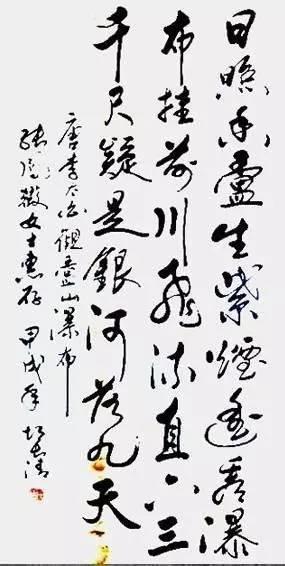 日照香盧生紫煙遥看瀑
布挂前川飛流直下三
千尺疑是銀河落九天
唐李太白觀廬山瀑布
張薇女士惠存 甲戌年